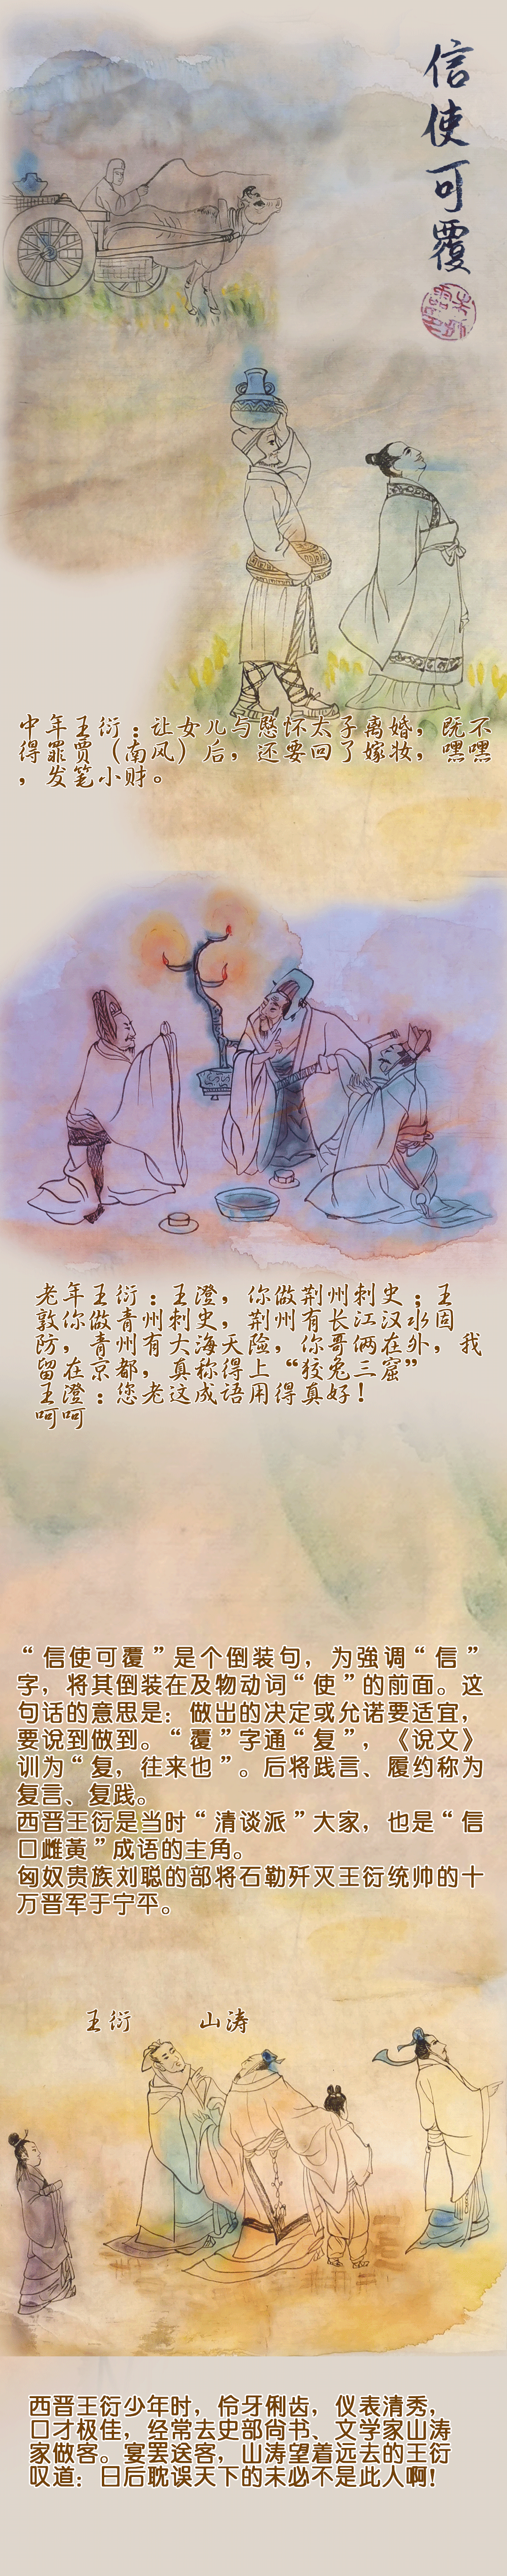 信使可覆
中年王衍：让女儿与愍怀太子离婚，既不
得罪贾（南风）后，还要回了嫁妆，嘿嘿
，发笔小财。
老年王衍：王澄，你做荆州刺史；王
敦你做青州刺史，荆州有长江汉水固
防，青州有大海天险，你哥俩在外，我
留在京都，真称得上“狡兔三窟”
王澄：您老这成语用得真好！
呵呵
“信使可覆”是个倒装句，为強调“信”
字，将其倒装在及物动词“使”的前面。这
句话的意思是：做出的决定或允诺要适宜，
要说到做到。“覆”字通“复”，《说文》
训为“复，往来也”。后将践言、履约称为
复言、复践。
西晋王衍是当时“清谈派”大家，也是“信
口雌黃”成语的主角。
匈奴贵族刘聪的部将石勒歼灭王衍统帅的十
万晋军于宁平。
王衍 山涛
西晋王衍少年时，伶牙俐齿，仪表清秀，
口才极佳，经常去吏部尚书、文学家山涛
家做客。宴罢送客，山涛望着远去的王衍
叹道：日后耽误天下的未必不是此人啊！